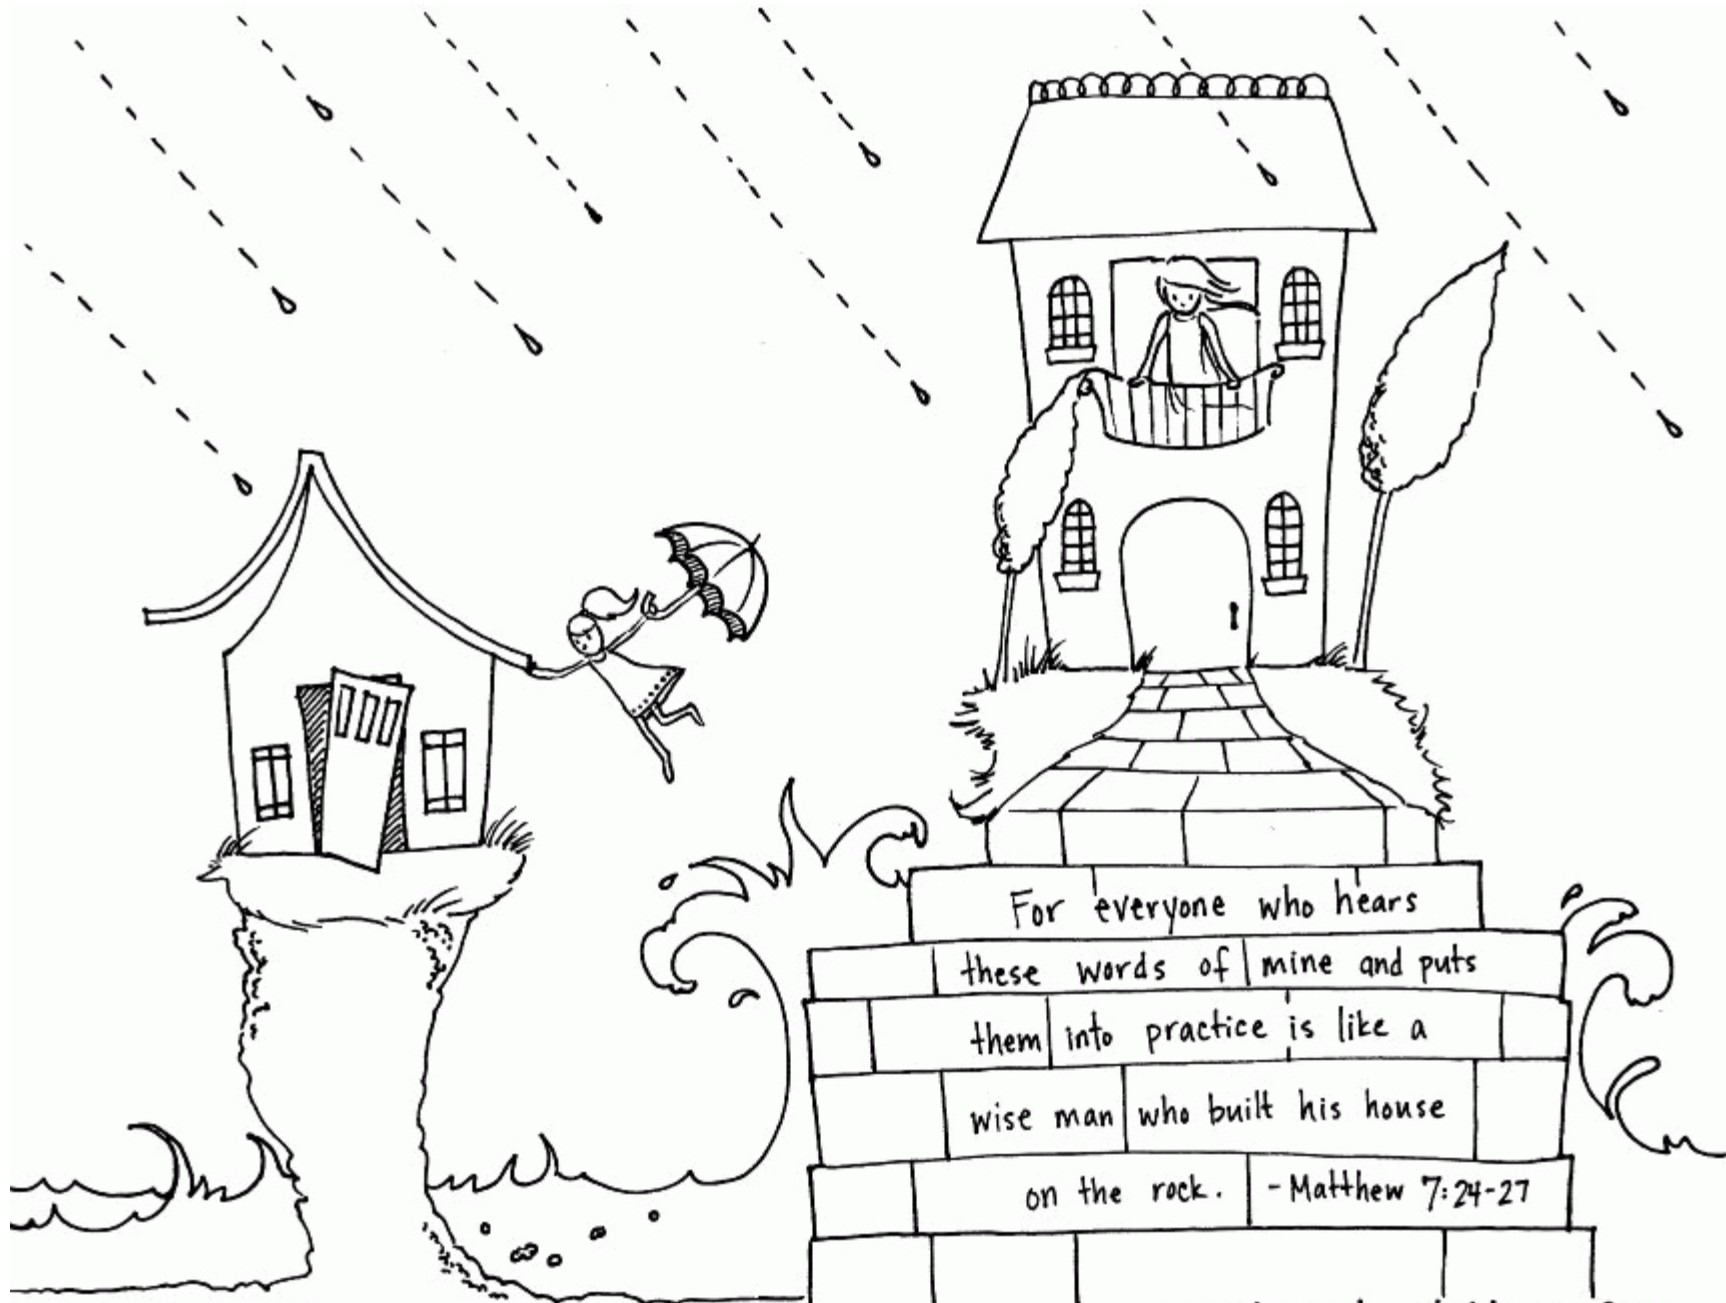 For everyone who hears
these words of mine and puts
them into practice is like a
wise man who built his house
on the rock. -Matthew 7:24-27